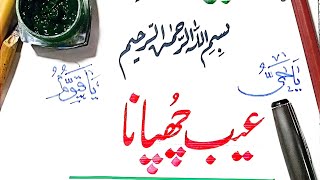 بسم اللہ الرحمٰن الرحیم
یا حیُّ
یا قیومُ
عیب چُھپانا